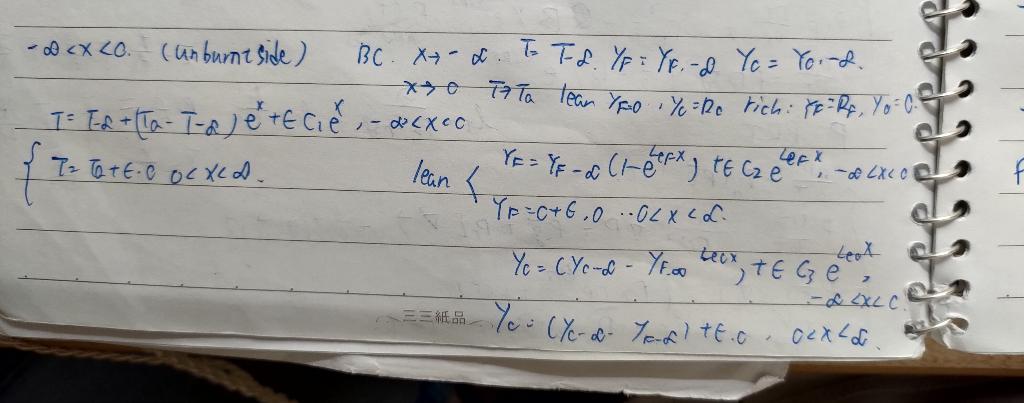 -∞<x<0. (unburnt side) BC. x→-∞. T= T-∞. YF=YF,-∞ YO=YO,-∞.
x→0 T→Ta lean YF=0, YO=RO rich: YF=RF, YO=0.
T=T-∞+(Ta-T-∞)e^x+εC1e^x, -∞<x<0
{ T=Ta+ε·0 0<x<∞.
lean { YF=YF-∞(1-e^LeFx)+εC2e^LeFx, -∞<x<0
YF=0+ε·0 ··0<x<∞.
YO=(YO-∞-YF-∞ e^LeOx)+εC3e^LeOx,
-∞<x<0.
YO=(YO-∞-YF-∞)+ε·0, 0<x<∞.
三三紙品